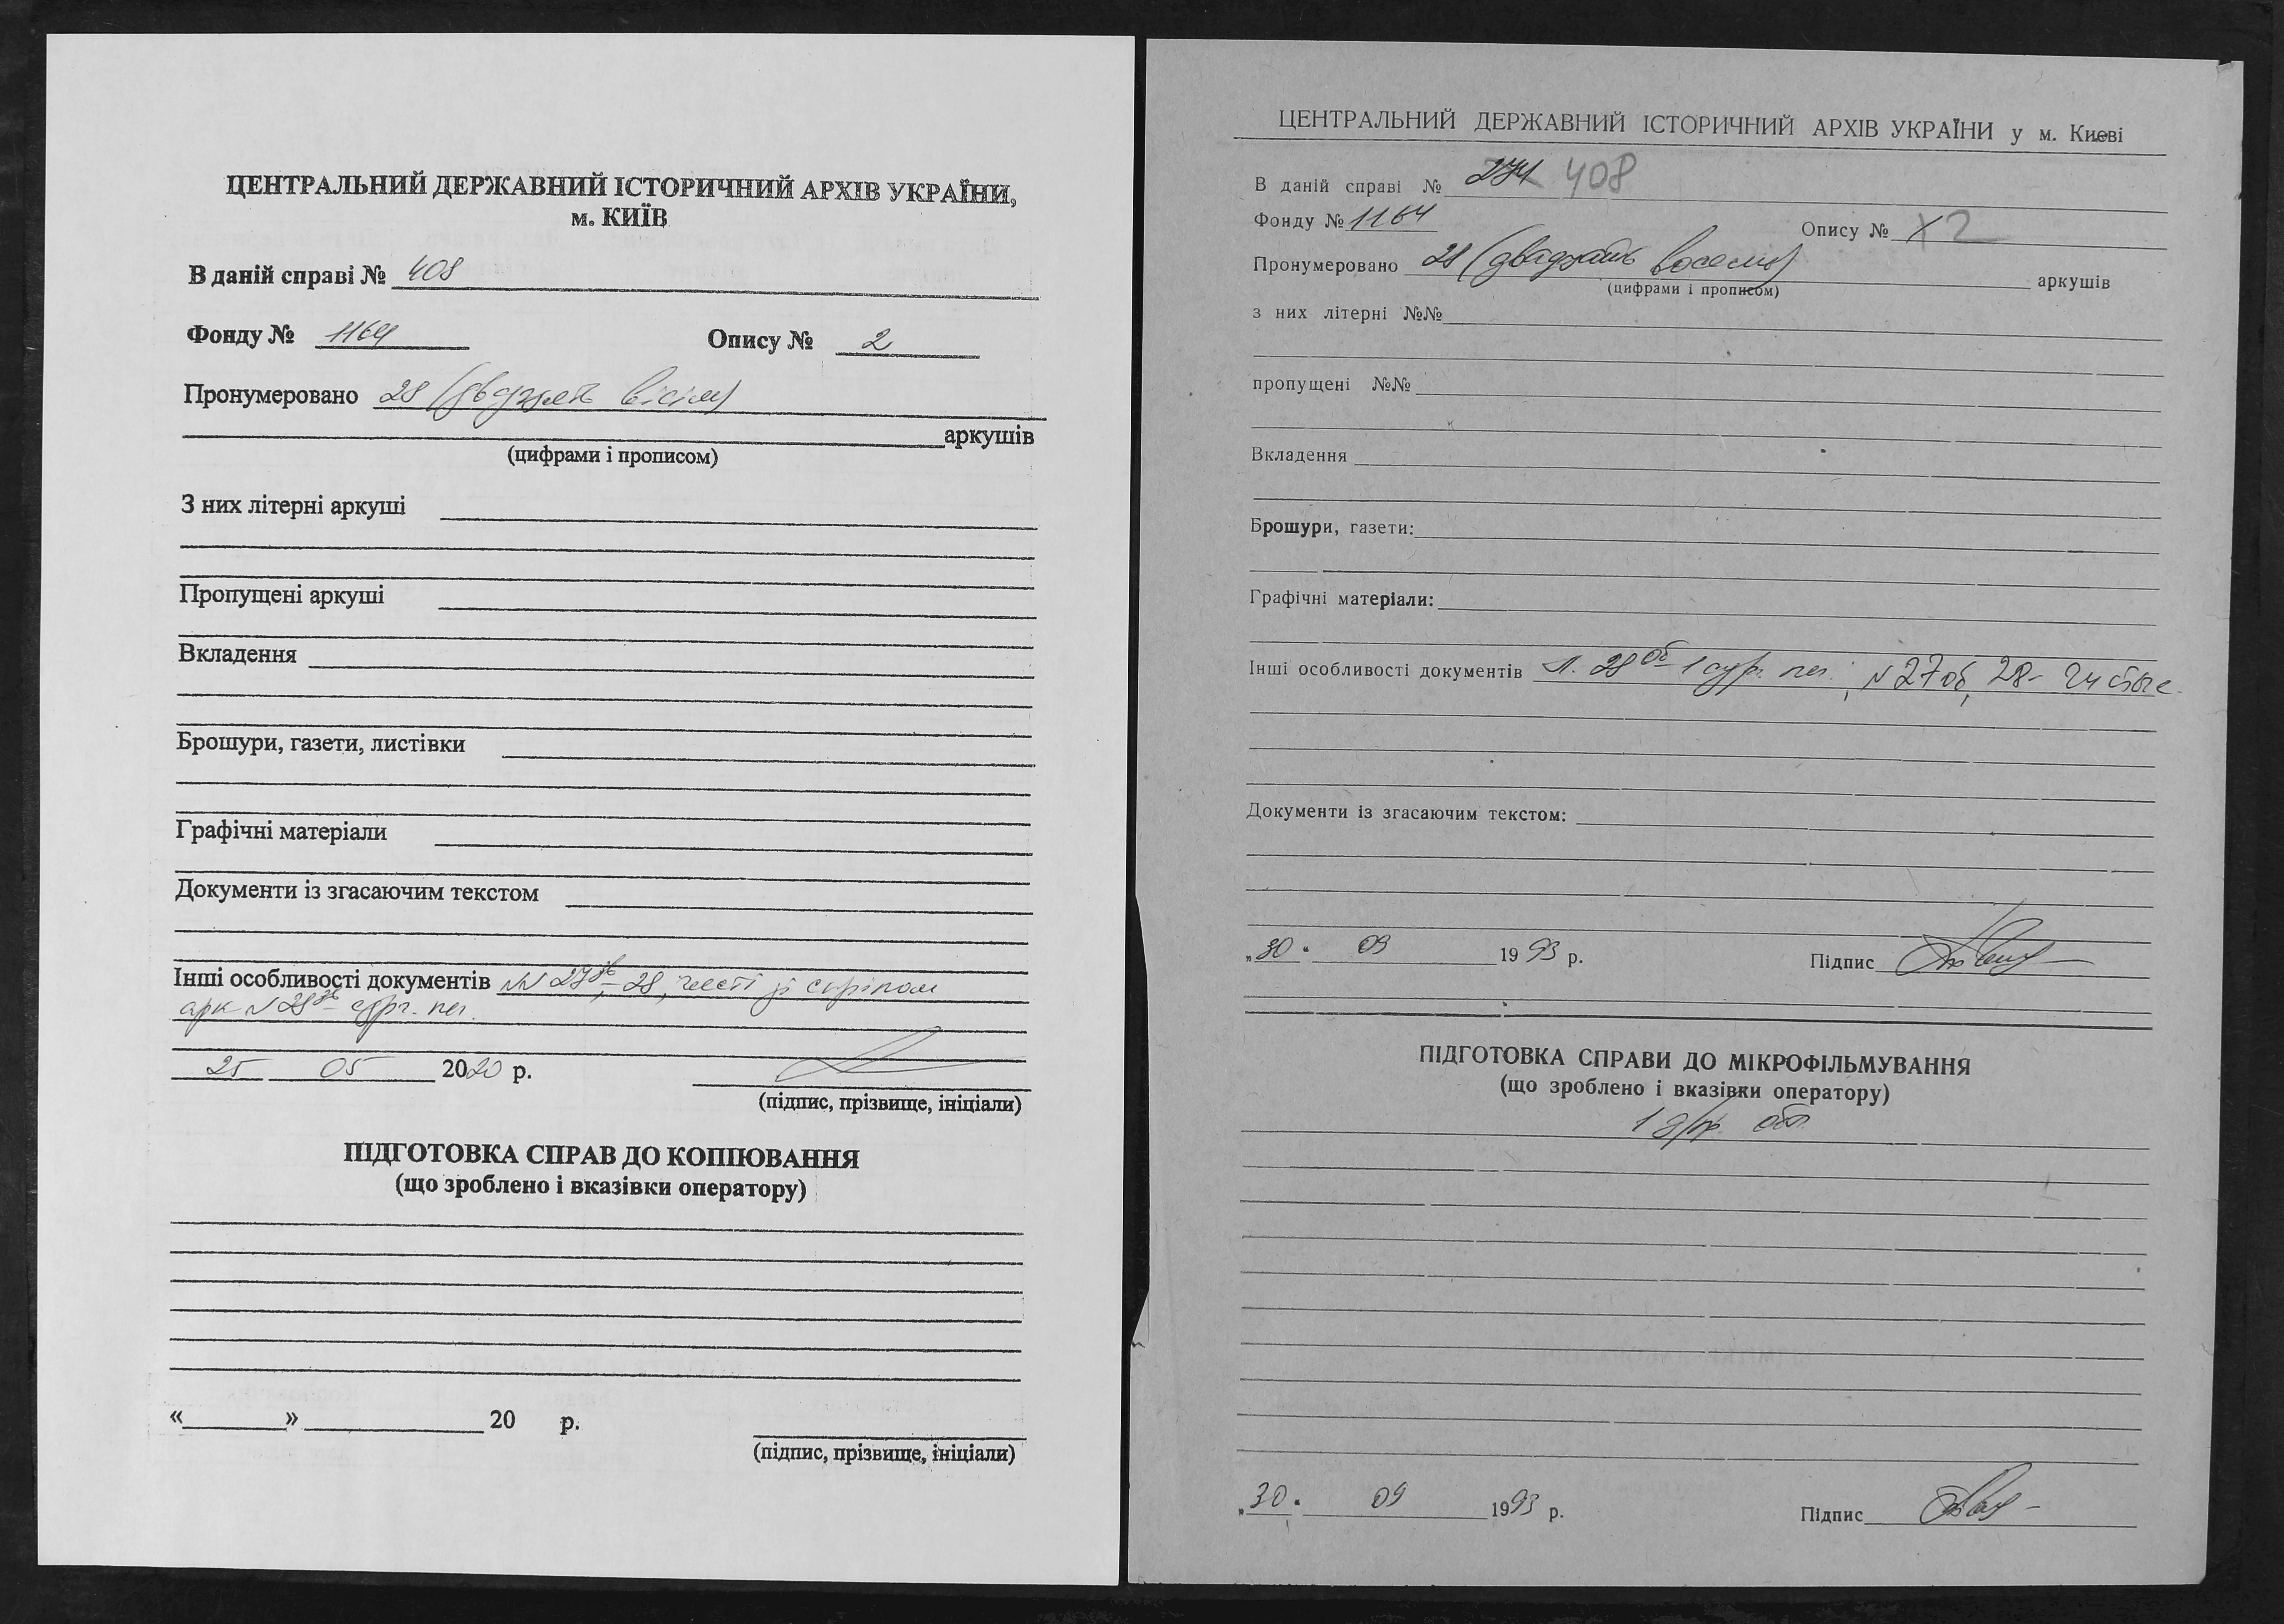 ЦЕНТРАЛЬНИЙ ДЕРЖАВНИЙ ІСТОРИЧНИЙ АРХІВ УКРАЇНИ,
м. КИЇВ
В даній справі № 408
Фонду № 1164 Опису № 2
Пронумеровано 28 (двадцять вісім)
аркушів
(цифрами і прописом)
З них літерні аркуші
Пропущені аркуші
Вкладення
Брошури, газети, листівки
Графічні матеріали
Документи із згасаючим текстом
Інші особливості документів №№ 27зв, 28, чисті зі скріпом
арк № 28зв - сург. печ.
25 05 2020 р.
(підпис, прізвище, ініціали)
ПІДГОТОВКА СПРАВ ДО КОПІЮВАННЯ
(що зроблено і вказівки оператору)
« » 20 р.
(підпис, прізвище, ініціали)
ЦЕНТРАЛЬНИЙ ДЕРЖАВНИЙ ІСТОРИЧНИЙ АРХІВ УКРАЇНИ у м. Києві
В даній справі № 274 408
Фонду № 1164 Опису № 2
Пронумеровано 28 (двадцать восемь)
(цифрами і прописом) аркушів
з них літерні №№
пропущені №№
Вкладення
Брошури, газети:
Графічні матеріали:
Інші особливості документів Л. 28об - 1 сург. печ.; № 27об, 28 - чистые.
Документи із згасаючим текстом:
„30" 09 1993 р. Підпис
ПІДГОТОВКА СПРАВИ ДО МІКРОФІЛЬМУВАННЯ
(що зроблено і вказівки оператору)
1
„30" 09 1993 р. Підпис